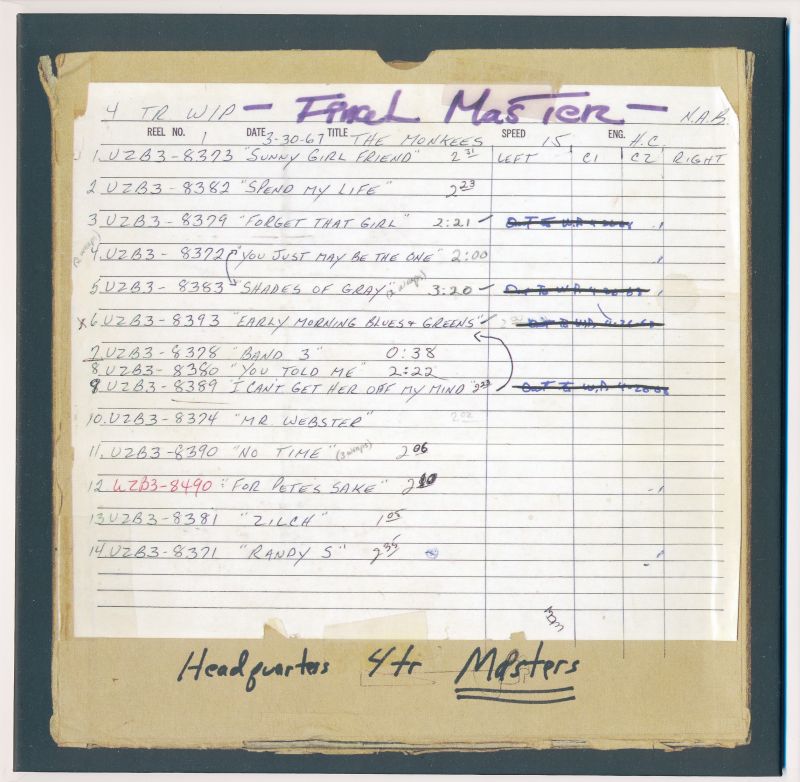 4 TR W/P - Final Master - N.A.B
REEL NO. 1 DATE 3-30-67 TITLE THE MONKEES SPEED 15 ENG. H.C.
1. UZB3-8373 "SUNNY GIRL FRIEND" 2 31 LEFT C1 C2 RIGHT
2 UZB3-8382 "SPEND MY LIFE" 2 23
3 UZB3-8379 "FORGET THAT GIRL" 2:21 OUT TO W.P. 4-20-68
4. UZB3-8372 "YOU JUST MAY BE THE ONE" 2:00
(2 wraps)
5. UZB3-8383 "SHADES OF GRAY" (2 wraps) 3:20 OUT TO W.P. 4-20-68
x 6. UZB3-8393 "EARLY MORNING BLUES + GREENS" OUT TO W.P. 4-20-68
7 UZB3-8378 "BAND 3" 0:38
8. UZB3-8380 "YOU TOLD ME" 2:22
9 UZB3-8389 "I CAN'T GET HER OFF MY MIND" 2 22 OUT TO W.P. 4-20-68
10. UZB3-8374 "MR. WEBSTER" 2 02
11. UZB3-8390 "NO TIME" (3 wraps) 2 06
12 UZB3-8490 "FOR PETES SAKE" 2 10
13 UZB3-8381 "ZILCH" 1 05
14. UZB3-8371 "RANDY S" 2 35
Headquarters 4tr Masters